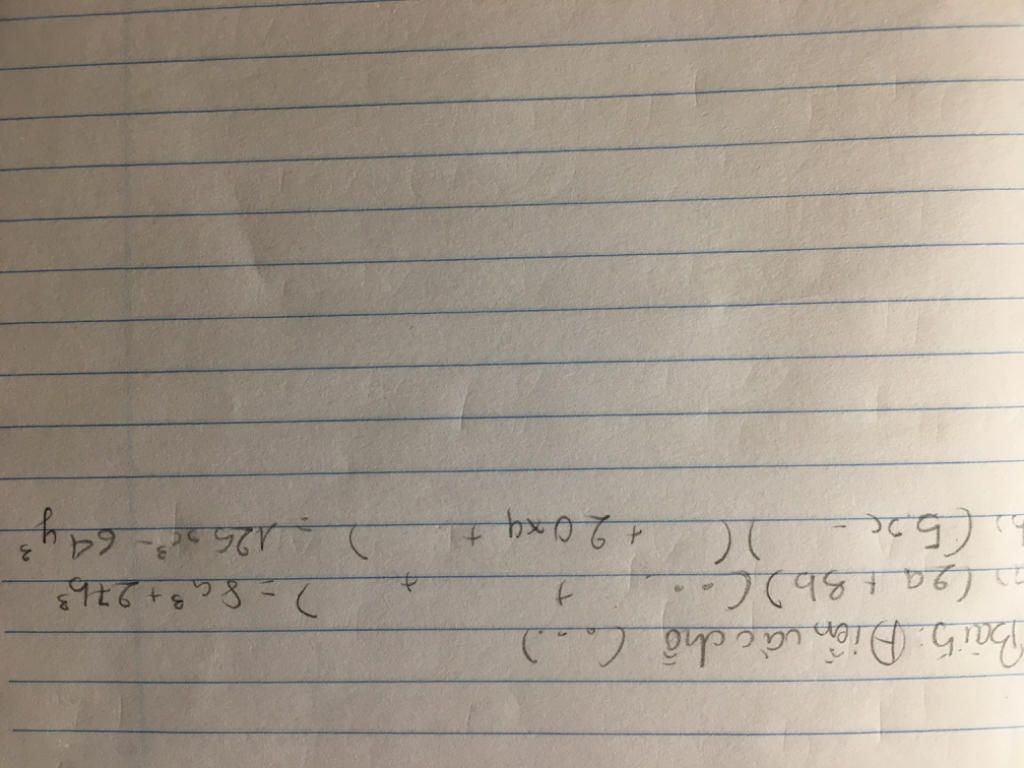 Bài 5: Điền vào chỗ (...)
a) (2a + 3b)(... + + ) = 8a³ + 27b³
b) (5x - )( + 20xy + ) = 125x³ - 64y³